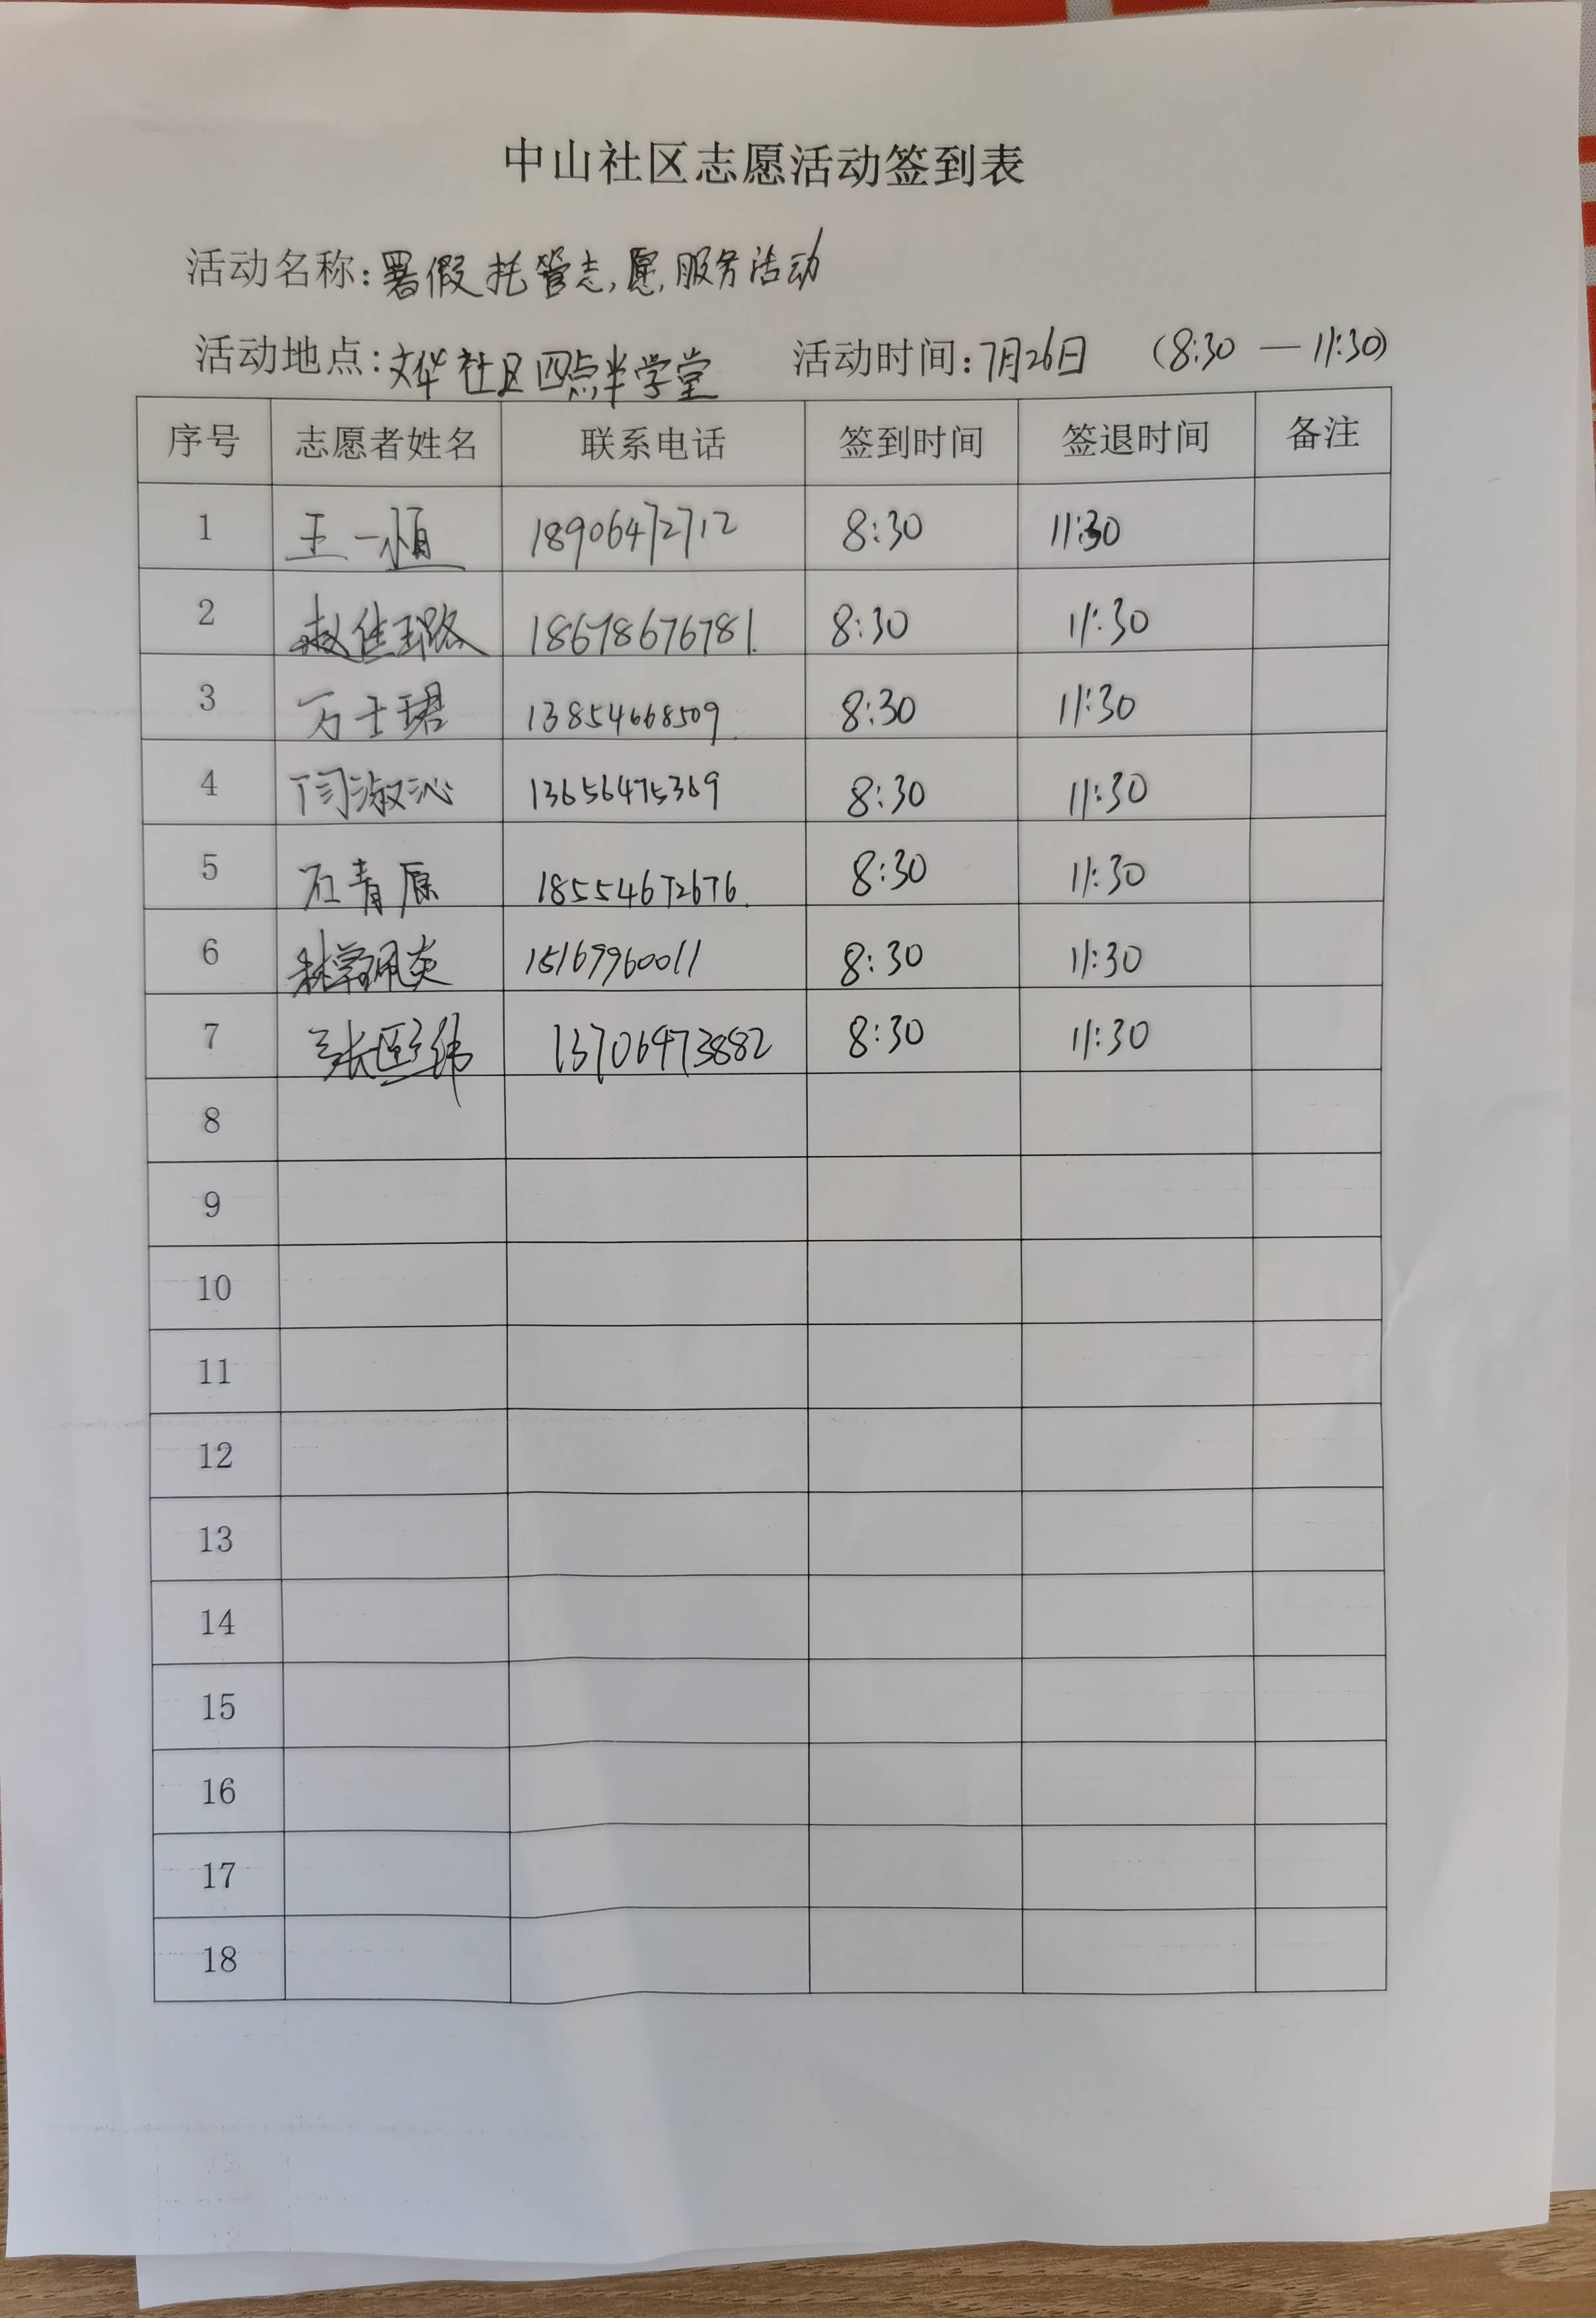 中山社区志愿活动签到表
活动名称:暑假托管志愿服务活动
活动地点:文华社区四点半学堂 活动时间:7月26日 (8:30 — 11:30)
序号 志愿者姓名 联系电话 签到时间 签退时间 备注
1 王一恒 18906472712 8:30 11:30
2 赵佳璐 18678676781 8:30 11:30
3 万士珺 13854668509 8:30 11:30
4 闫淑沁 13656475369 8:30 11:30
5 石青原 18554672676 8:30 11:30
6 15169960011 8:30 11:30
7 13706473882 8:30 11:30
8
9
10
11
12
13
14
15
16
17
18